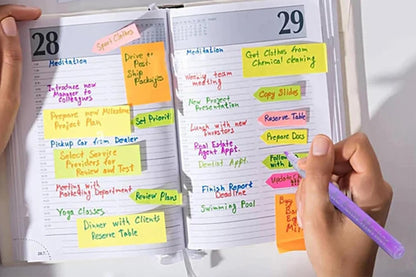 28
Sport Clothes
Meditation
Drive to
Post.
Ship
Packages
Introduce new
Manager to
Colleagues
Prepare new Milestone
Project Plan
Set Priorit
Pickup Car from Dealer
Select Service
Providers for
Review and Test
Meeting with
Marketing Department
Review Plans
Yoga Classes
Dinner with Clients
Reserve Table
29
Meditation
Get Clothes from
Chemical cleaning
Weekly team
meeting
Copy Slides
New Project
Presentation
Reserve Table
Lunch with new
investors
Prepare Docs
Real Estate
Agent Appt.
Follow
with
Dentist Appt.
Update
Finish Report
Deadline
Buy
Swimming Pool